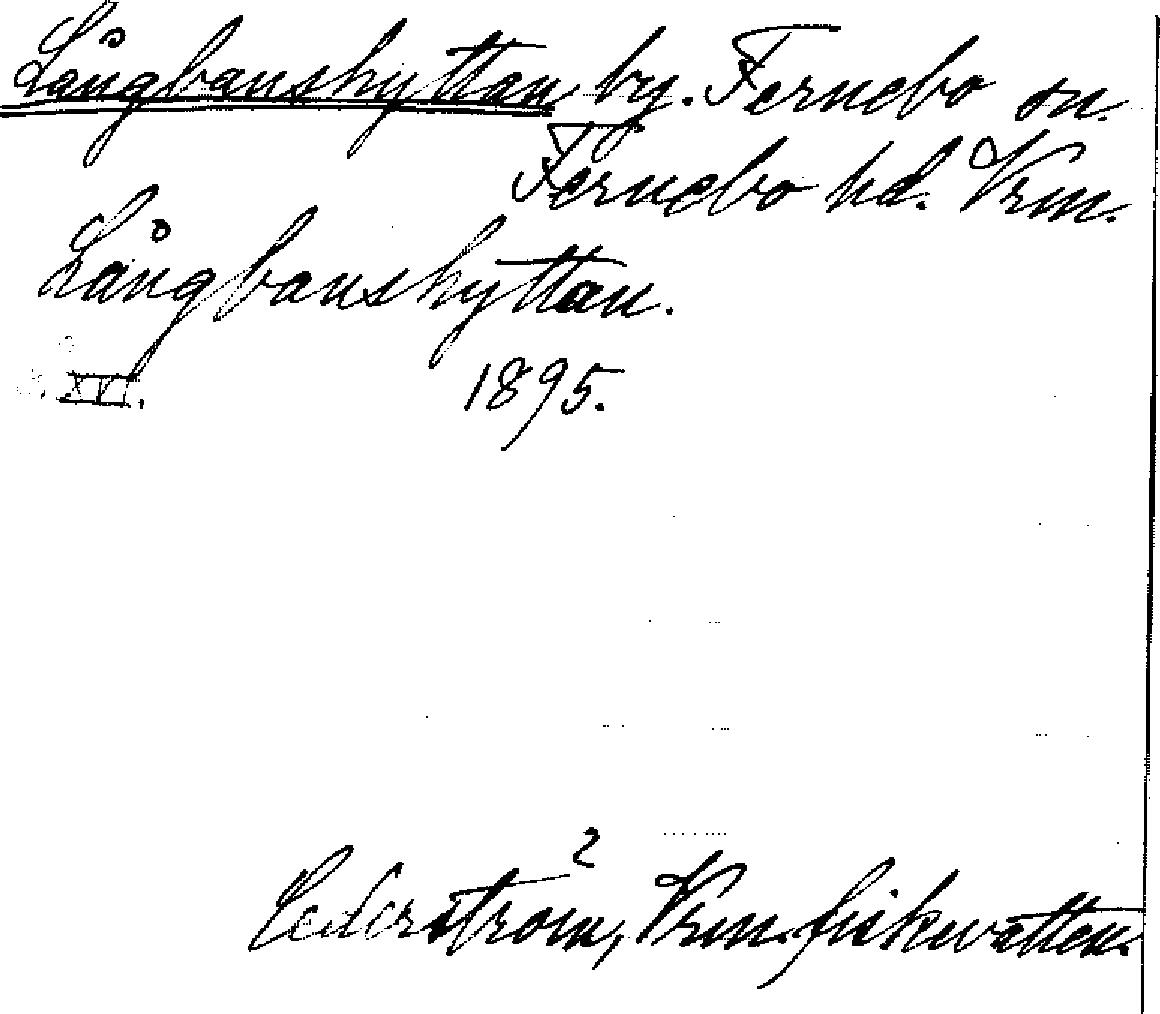 Långbanshyttan by. Fernebo sn.
Fernebo hd. Vrm.
Långbanshyttan.
XVI. 1895.
Cederström, Vrm. fiskvatten.²